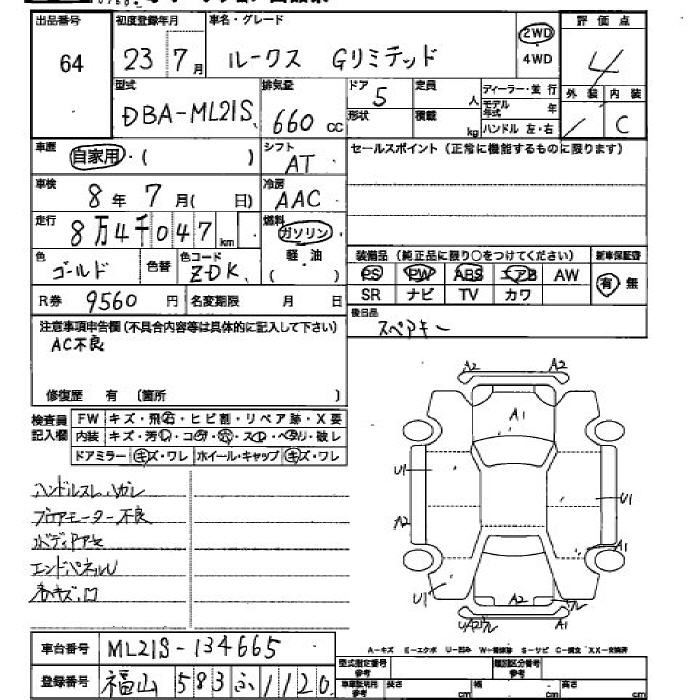 出品番号 初度登録年月 車名・グレード 評価点
64 23年7月 ルークス Gリミテッド 2WD・4WD 4
型式 排気量 ドア 定員 ディーラー・並行 外装 内装
DBA-ML21S 660cc 5 人 モデル年式 年 / C
形状 積載 kg ハンドル 左・右
車歴 自家用・( ) シフト AT セールスポイント (正常に機能するものに限ります)
車検 8年7月( 日) 冷房 AAC
走行 8万4千047km 燃料 ガソリン
色 ゴールド 色替 色コード ZDK 軽・油 ( )
装備品 (純正品に限り○をつけてください) 新車保証書
PS PW ABS エアB AW 有・無
SR ナビ TV カワ
R券 9560円 名変期限 月 日
後日品
スペアキー
注意事項申告欄(不具合内容等は具体的に記入して下さい)
AC不良
修復歴 有 (箇所 )
検査員記入欄
FW キズ・飛石・ヒビ割・リペア跡・X要
内装 キズ・汚れ・コゲ・穴・スレ・ヘタリ・破レ
ドアミラー キズ・ワレ ホイール・キャップ キズ・ワレ
ハンドルスレ、ハガレ
ブロアモーター不良
エンドパネルU
A2 A2
A1
U1 U1
A2
A1
U1 A2 A1
A-キズ E-エクボ U-凹み W-補修跡 S-サビ C-腐食 XX-交換済
車台番号 ML21S-134665
登録番号 福山 583 ふ 1120
型式指定番号 参考 類別区分番号 参考
車庫証明用 参考 長さ cm 幅 cm 高さ cm